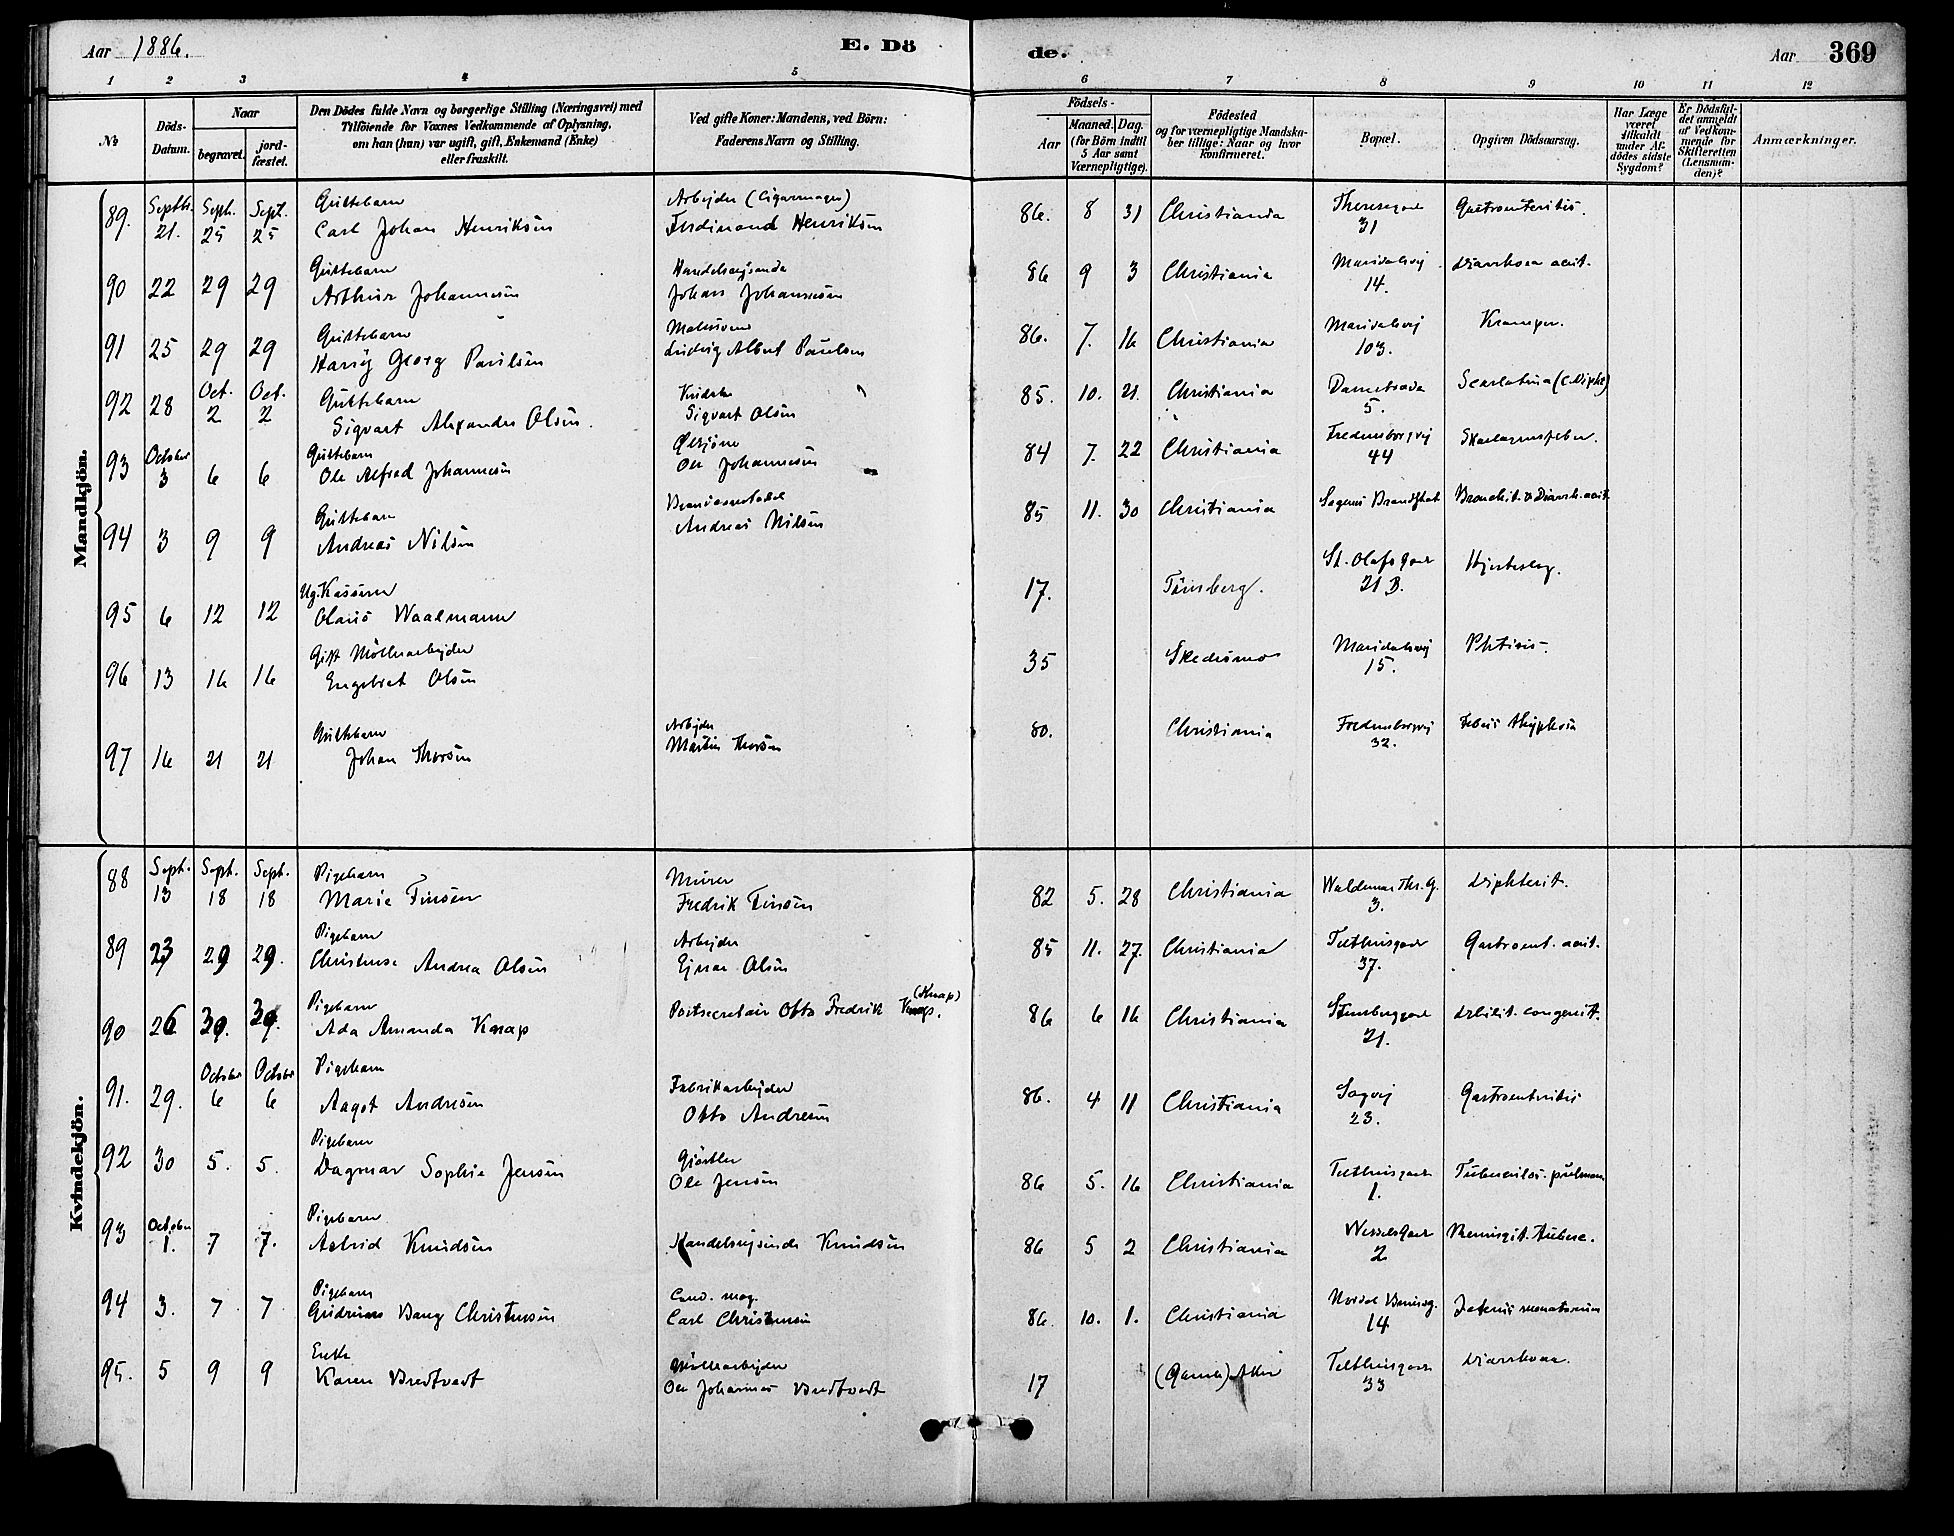 Aar 1886. E. Dö de. Aar 369
1 2 3 4 5 6 7 8 9 10 11 12
№ Döds-Datum. Naar begravet. jordfæstet. Den Dödes fulde Navn og borgerlige Stilling (Næringsvei) med Tilföiende for Voxnes Vedkommende af Oplysning, om han (hun) var ugift, gift, Enkemand (Enke) eller fraskilt. Ved gifte Koner: Mandens, ved Börn: Faderens Navn og Stilling. Födsels- Aar Maaned. Dag. (for Börn indtil 5 Aar samt Værnepligtige). Födested og for værnepligtige Mandskaber tillige: Naar og hvor konfirmeret. Bopæl. Opgiven Dödsaarsag. Har Læge været tilkaldt under Afdödes sidste Sygdom? Er Dödsfaldet anmeldt af Vedkommende for Skifteretten (Lensmanden)? Anmærkninger.
Mandkjön.
89. Septbr. 21. Sept. 25 Sept. 25 Guttebarn Carl Johan Henriksen Arbejder (Cigarmager) Ferdinand Henriksen 86. 8 31 Christiania Theresegade 31 Gastroenteritis.
90 22 29 29 Guttebarn Arthur Johannesen Johan Johannesen 86 9 3 Christiania Maridalsvej 14. Diarrhoea acut.
91 25 29 29 Guttebarn Harry Georg Paulsen Malersvend Ludvig Albert Paulsen 86. 7. 16 Christiania Maridalsvej 103. Kramper.
92 28 Oct. 2 Oct. 2 Guttebarn Sigvart Alexander Olsen. Sigvart Olsen 85. 10. 21. Christiania 5. Scarlatina (c. Dipht)
93 October 3 6 6 Guttebarn Ole Alfred Johannesen Ole Johannesen 84 7. 22 Christiania Fredensborgvej 44 Skarlagensfeber.
94 3 9 9 Guttebarn Andreas Nilsen Andreas Nilsen 85 11. 30 Christiania Sagenes Brandstat Bronchit. & Diarrh. acut.
95 6 12 12 Ug. Olaus Waalmann 17. Tönsberg. St. Olafs Gade 21 B. Hjerteslag.
96 13 16 16 Gift Möllearbejder Engebret Olsen 35 Skedsmo Maridalsvej 15. Phtisis.
97 16 21 21 Guttebarn Johan Thorsen Arbejder Martin Thorsen 80. Christiania Fredensborgvej 32. Febris thyphoia
Kvindekjön.
88 Sept. 13 Sept. 18 Sept. 18 Pigebarn Marie Finsen Murer Fredrik Finsen 82 5. 28 Christiania Waldemar Thr. G. 3. Diphterit.
89 23 29 29. Pigebarn Christense Andrea Olsen Arbejder Ejnar Olsen 85 11. 27. Christiania Telthusgade 37. Gastroent. acut.
90 26 30. 30. Pigebarn Ada Amanda Knap Postsecretair Otto Fredrik Knap. (Knap) 86 6 16 Christiania Stensberggade 21. Debilit. congenit.
91. 29. October 6 October 6 Pigebarn Aagot Andresen Fabrikarbejder Otto Andresen 86. 4 11 Christiania Sagvej 23. Gastroenteritis
92 30 5. 5. Pigebarn Dagmar Sophie Jensen Gjörtler Ole Jensen 86 5. 16 Christiania Telthusgade 1. Tuberculos. pulmon
93 October 1. 7 7. Pigebarn Astrid Knudsen Handelsrejsende Knudsen 86 5 2 Christiania Wessels Gade 2 Meningit. tuberc.
94 3. 7 7 Pigebarn Gudrun Bang Christensen Cand. mag. Carl Christensen 86. 10. 1. Christiania 14
95. 5 9 9 Enke Karen Bredtvedt Möllearbejder Ole Johannes Bredtvedt 17 Aker Telthusgade 33 Diarrhoea.